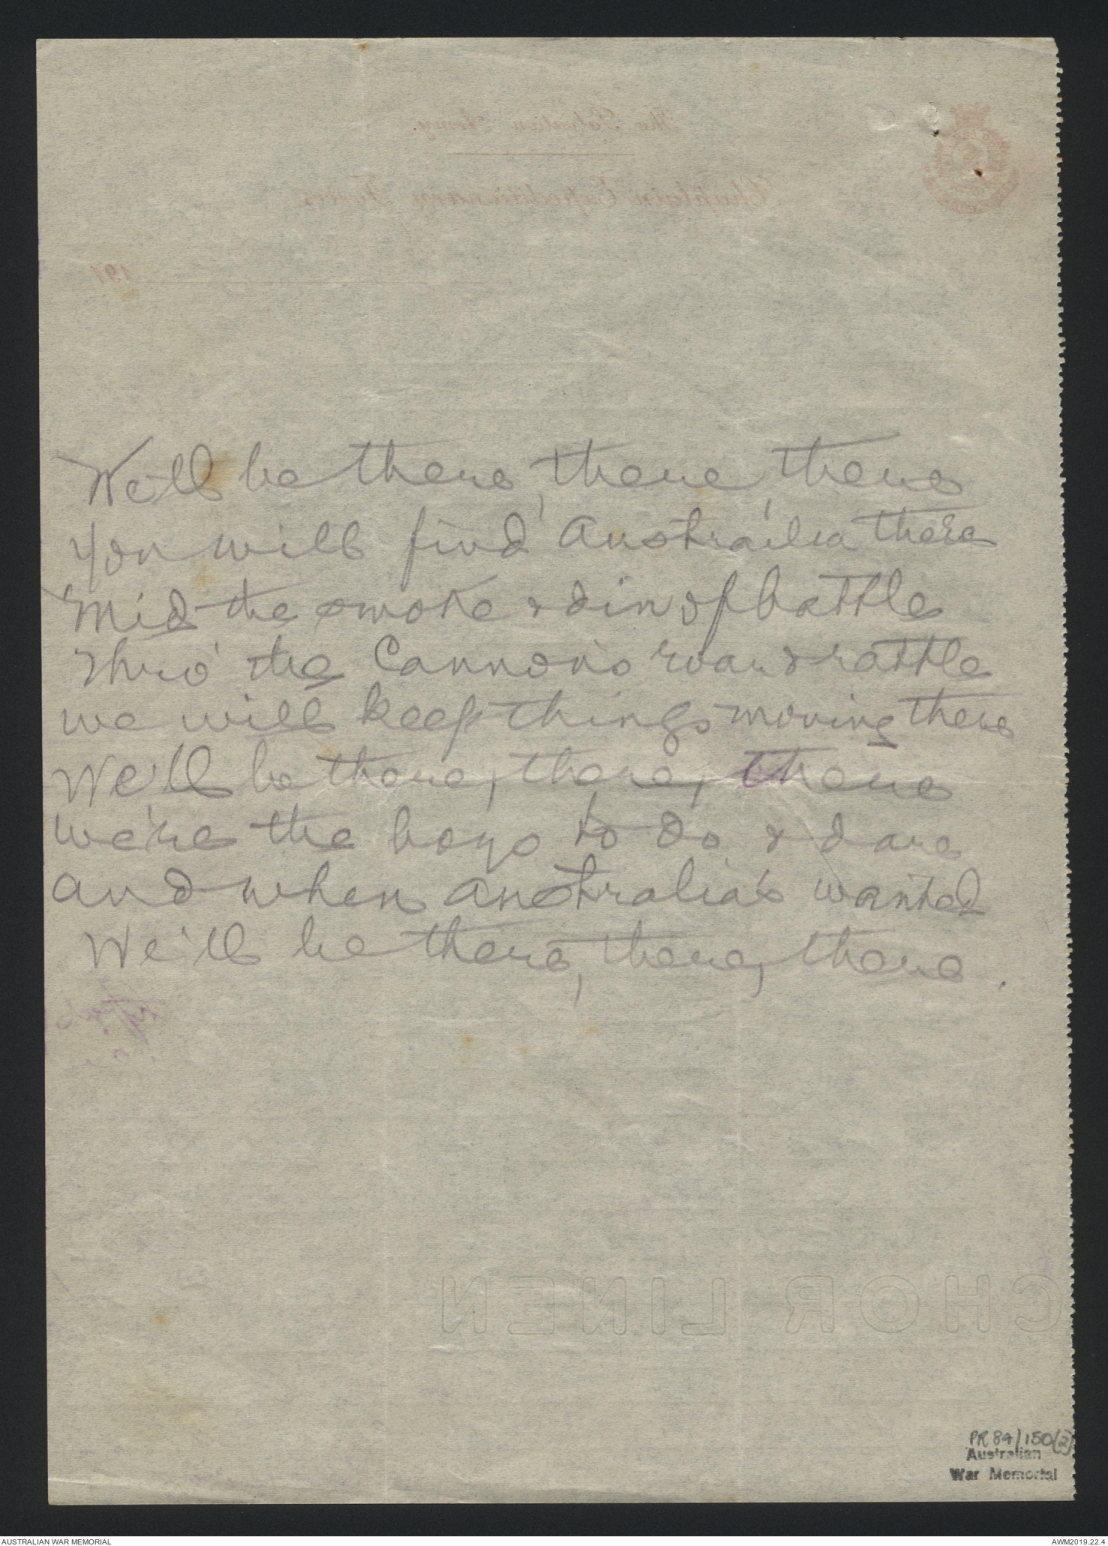 We'll be there, there, there
You will find Australia there
'Mid the smoke & din of battle
Thro' the Cannon's roar & rattle
we will keep things moving there
We'll be there, there, there
we're the boys to do & dare
and when Australia's wanted
We'll be there, there, there.
CHOR LINEN
PR 84/150(2)
Australian
War Memorial
AUSTRALIAN WAR MEMORIAL
AWM2019.22.4